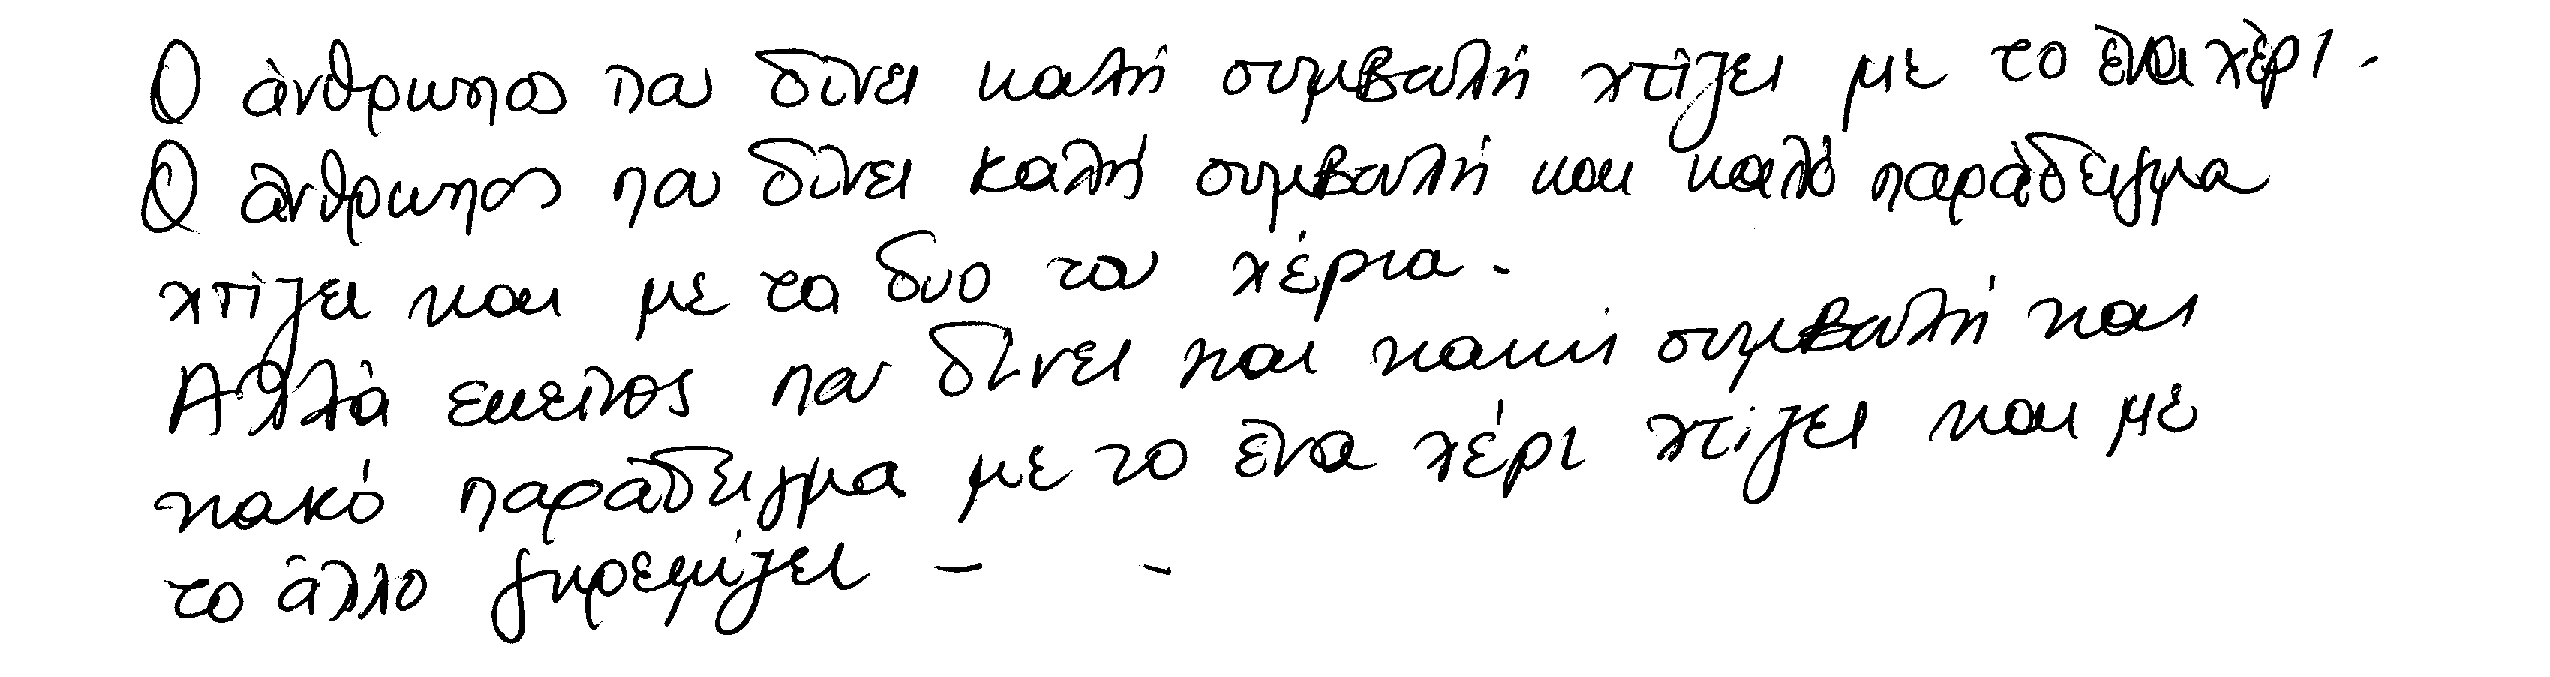 Ο άνθρωπος που δίνει καλή συμβουλή χτίζει με το ένα χέρι.
Ο άνθρωπος που δίνει καλή συμβουλή και καλό παράδειγμα
χτίζει και με τα δυο του χέρια.
Αλλά εκείνος που δίνει και κακή συμβουλή και
κακό παράδειγμα με το ένα χέρι χτίζει και με
το άλλο γκρεμίζει - -